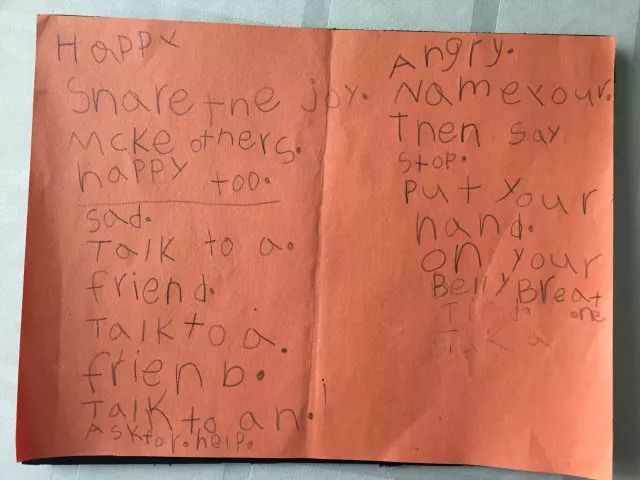 Happy
Share the joy.
Make others.
happy too.
sad.
Talk to a.
friend.
Talk to a.
frienb.
Talk to an.
Askfor.help.
Angry.
Name your.
Then say
stop.
Put your
hand.
on your
Belly Breat
one
Tak a